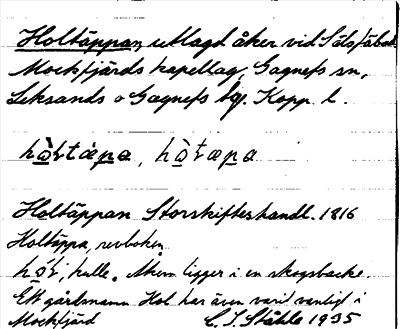 Holtäppan utlagd åker vid Sälsfäbod.
Mockfjärds kapellag, Gagnefs sn,
Leksands o Gagnefs tg. Kopp. l.
hɔ̀ɫtæpa, hɔɫæpa
Holtäppan Storskifteshandl. 1816
Holtäppa, revboken
hɔɫ, hylle. Åkern ligger i en skogsbacke.
Ett gårdsnamn Hol har även varit vanligt i
Mockfjärd C. I. Ståhle 1935